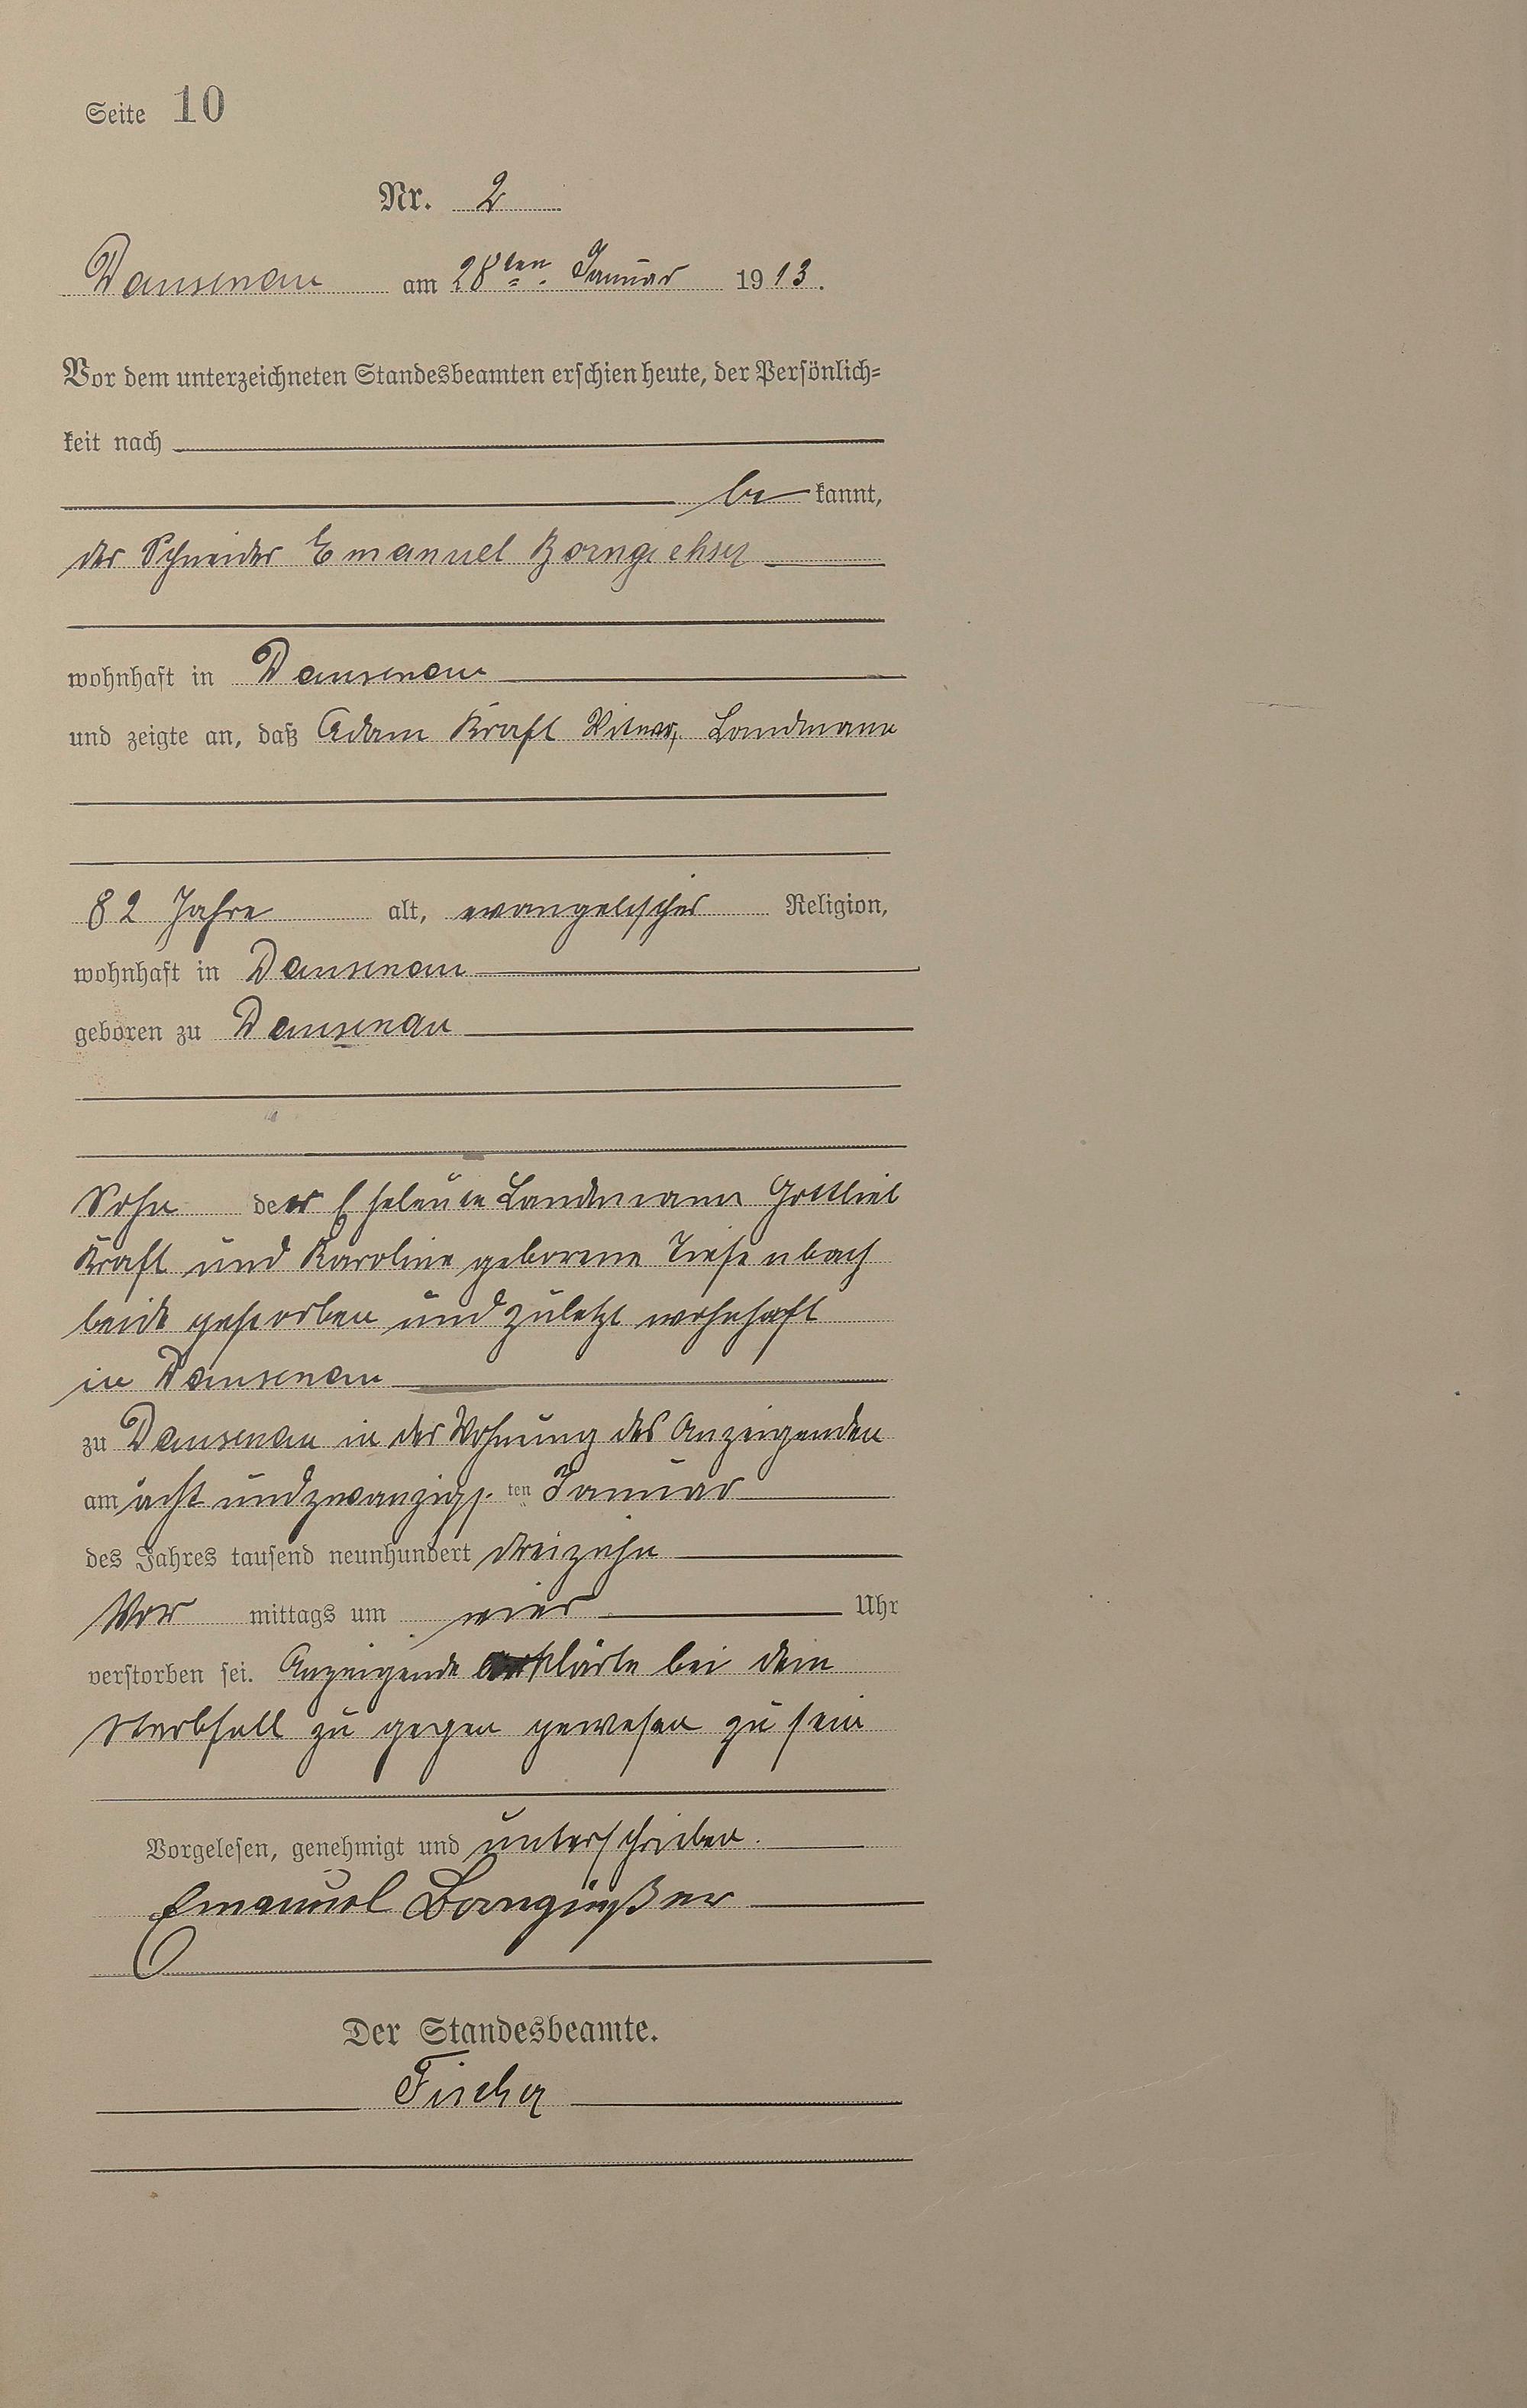 Seite 10
Nr. 2
Dausenau am 28ten Januar 1913.
Vor dem unterzeichneten Standesbeamten erschien heute, der Persönlich=
keit nach
be kannt,
der Schneider Emanuel
wohnhaft in Dausenau
und zeigte an, daß Adam Kraft Witwer, Landmann
82 Jahre alt, evangelischer Religion,
wohnhaft in Dausenau
geboren zu Dausenau
Sohn der Eheleute Landmann Gottlieb
Kraft und Karoline geborene Tiefenbach
beide gestorben und zuletzt wohnhaft
in Dausenau
zu Dausenau in der Wohnung des Anzeigenden
am acht undzwanzigs. ten Januar
des Jahres tausend neunhundert dreizehn
Vor mittags um vier Uhr
verstorben sei. Anzeigende erklärte bei dem
Sterbfall zu gegen gewesen zu sein
Vorgelesen, genehmigt und unterschrieben.
Emanuel Borngießer
Der Standesbeamte.
Fischer